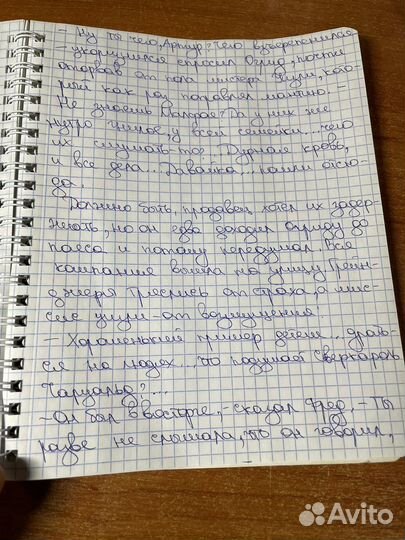 - Ну ты чего, Артур? Чего взъерепенился
- укоризнился спросил Огрид, почти
оторвав от пола мистера Уизли, кото-
рый как раз поправлял мантию. -
Не знаешь Малфоев? Да у них же
нутро гнилое, у всей семейки... чего
их слушать-то... Дурная кровь,
и все дела... Давайка... пошли отсю-
да.
Должно быть, продавец хотел их задер-
жать, но он едва доходил Огриду до
пояса и потому передумал. Вся
компания вышла на улицу. Грейн-
джеры тряслись от страха, а мис-
сис Уизли - от возмущения.
- Хорошенький пример детям... драть-
ся на людях... что подумает Сверкароль
Чаруальд?...
- Он был в восторге, - сказал Фред, - Ты
разве не слышала, что он говорил,
Avito